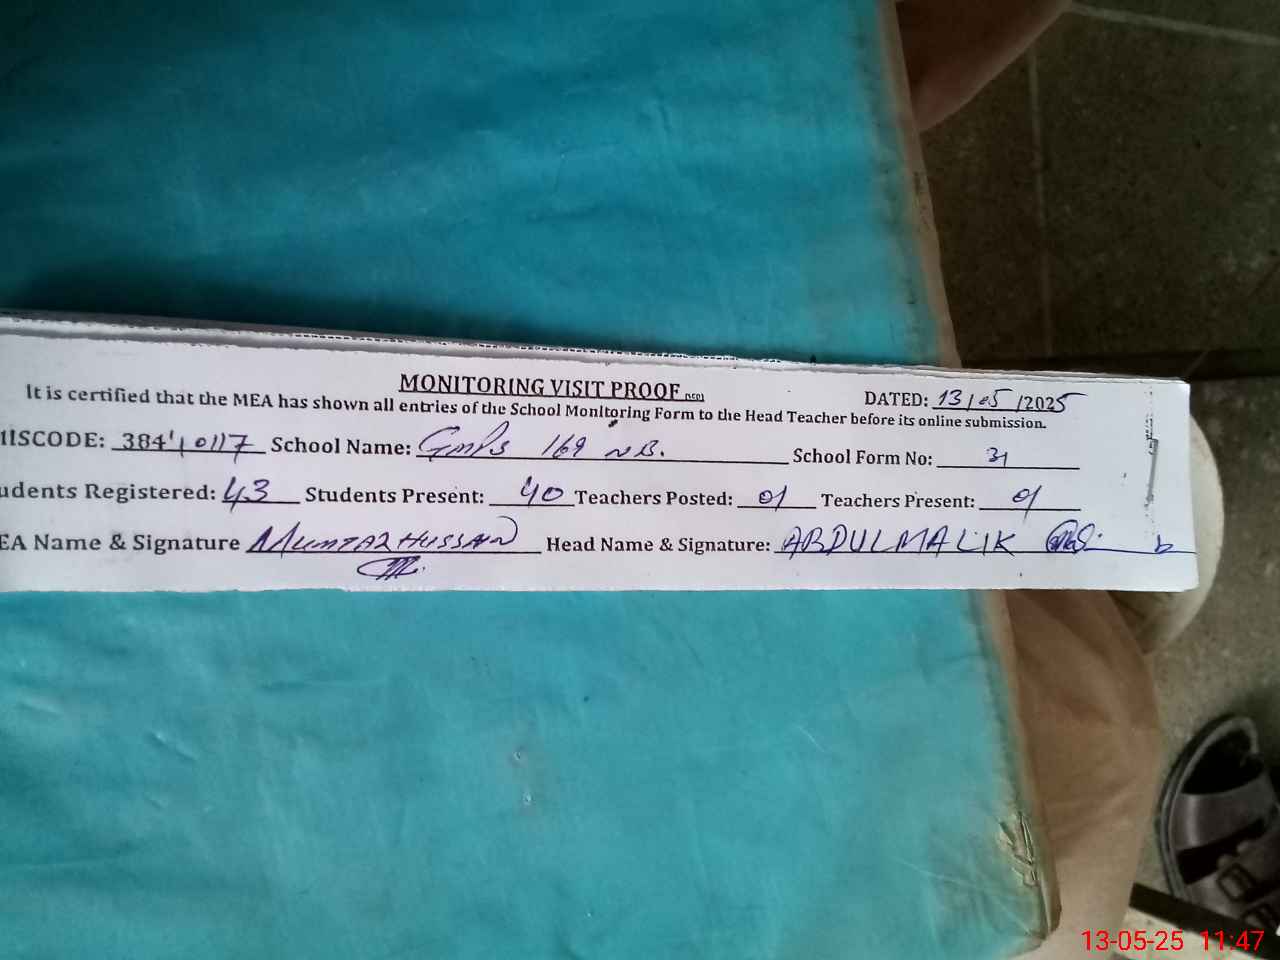 MONITORING VISIT PROOF
DATED: 13/05/2025
It is certified that the MEA has shown all entries of the School Monitoring Form to the Head Teacher before its online submission.
MISCODE: 38410117 School Name: GMPS 169 NB. School Form No: 31
udents Registered: 43 Students Present: 40 Teachers Posted: 01 Teachers Present: 01
EA Name & Signature MUMTAZ HUSSAIN Head Name & Signature: ABDUL MALIK
13-05-25 11:47